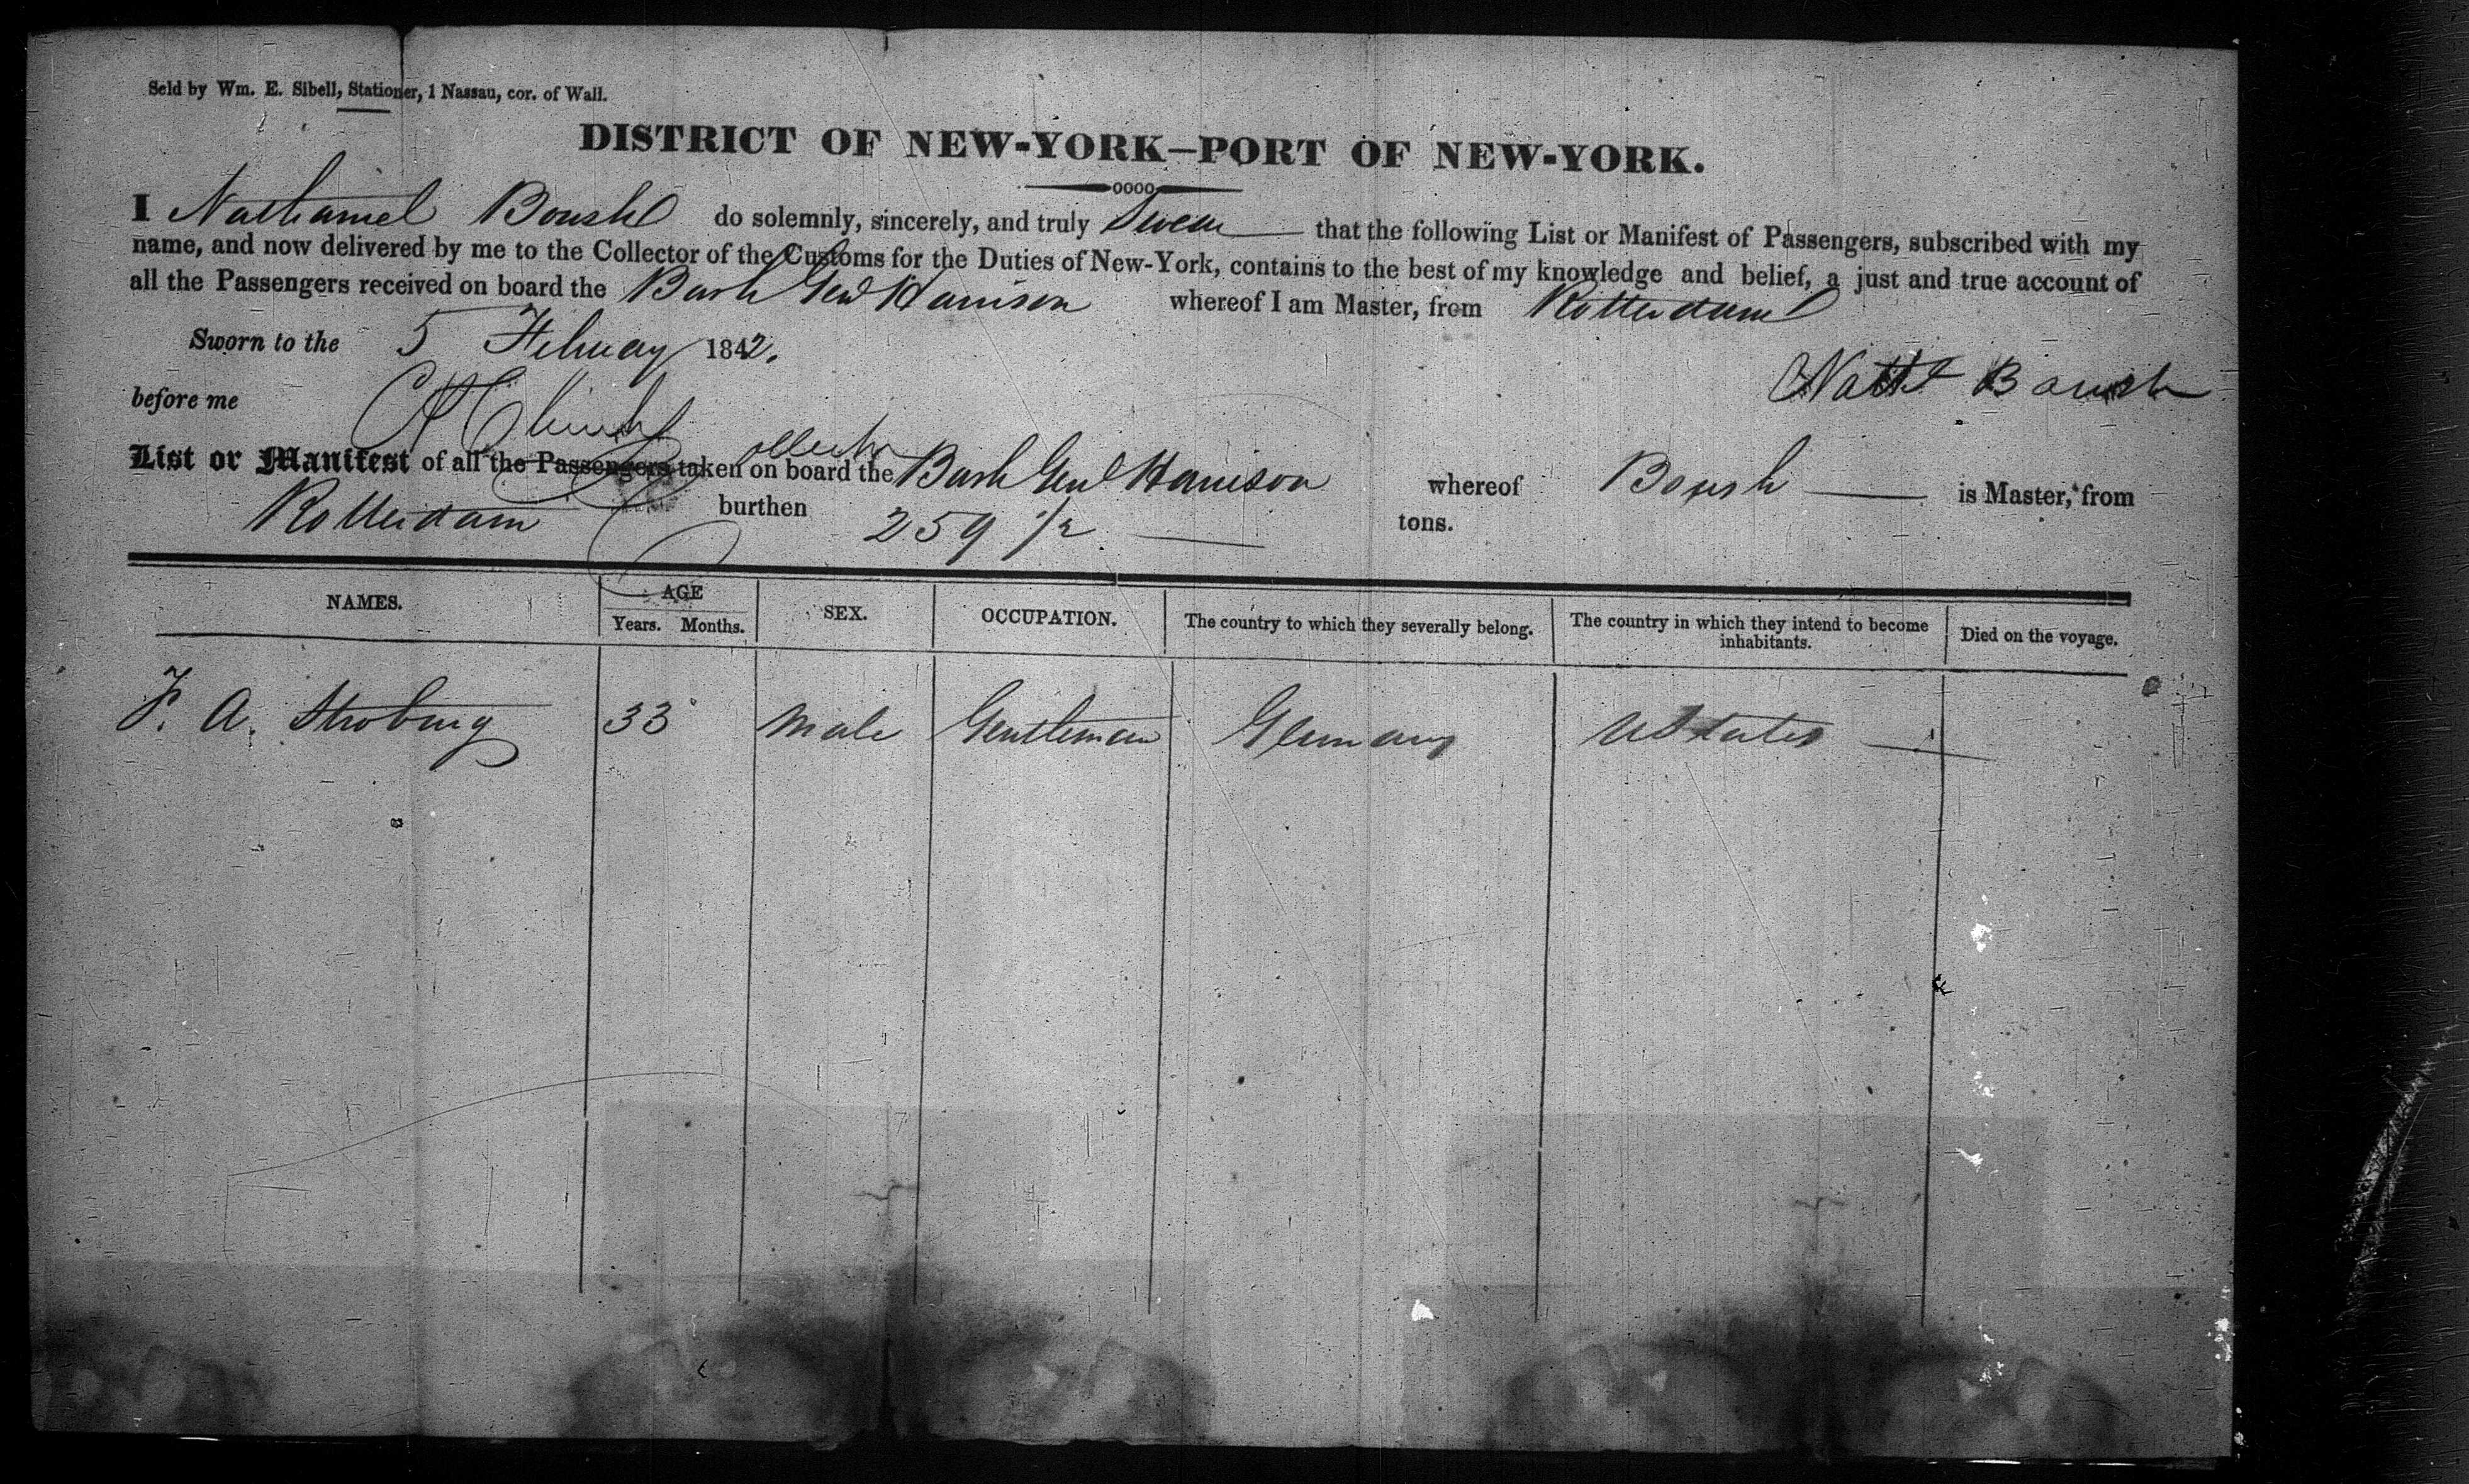 Sold by Wm. E. Sibell, Stationer, 1 Nassau, cor. of Wall.
DISTRICT OF NEW-YORK—PORT OF NEW-YORK.
I Nathaniel Boush do solemnly, sincerely, and truly Swear that the following List or Manifest of Passengers, subscribed with my
name, and now delivered by me to the Collector of the Customs for the Duties of New-York, contains to the best of my knowledge and belief, a just and true account of
all the Passengers received on board the Bark Genl Harrison whereof I am Master, from Rotterdam
Sworn to the 5 February 1842.
Natl Boush
before me
List or Manifest of all the Passengers taken on board the Bark Genl Harrison whereof Boush is Master, from
Rotterdam burthen 259 1/2 tons.
NAMES. AGE Years. Months. SEX. OCCUPATION. The country to which they severally belong. The country in which they intend to become inhabitants. Died on the voyage.
F. A. Stroburg 33 Male Gentleman Germany U States